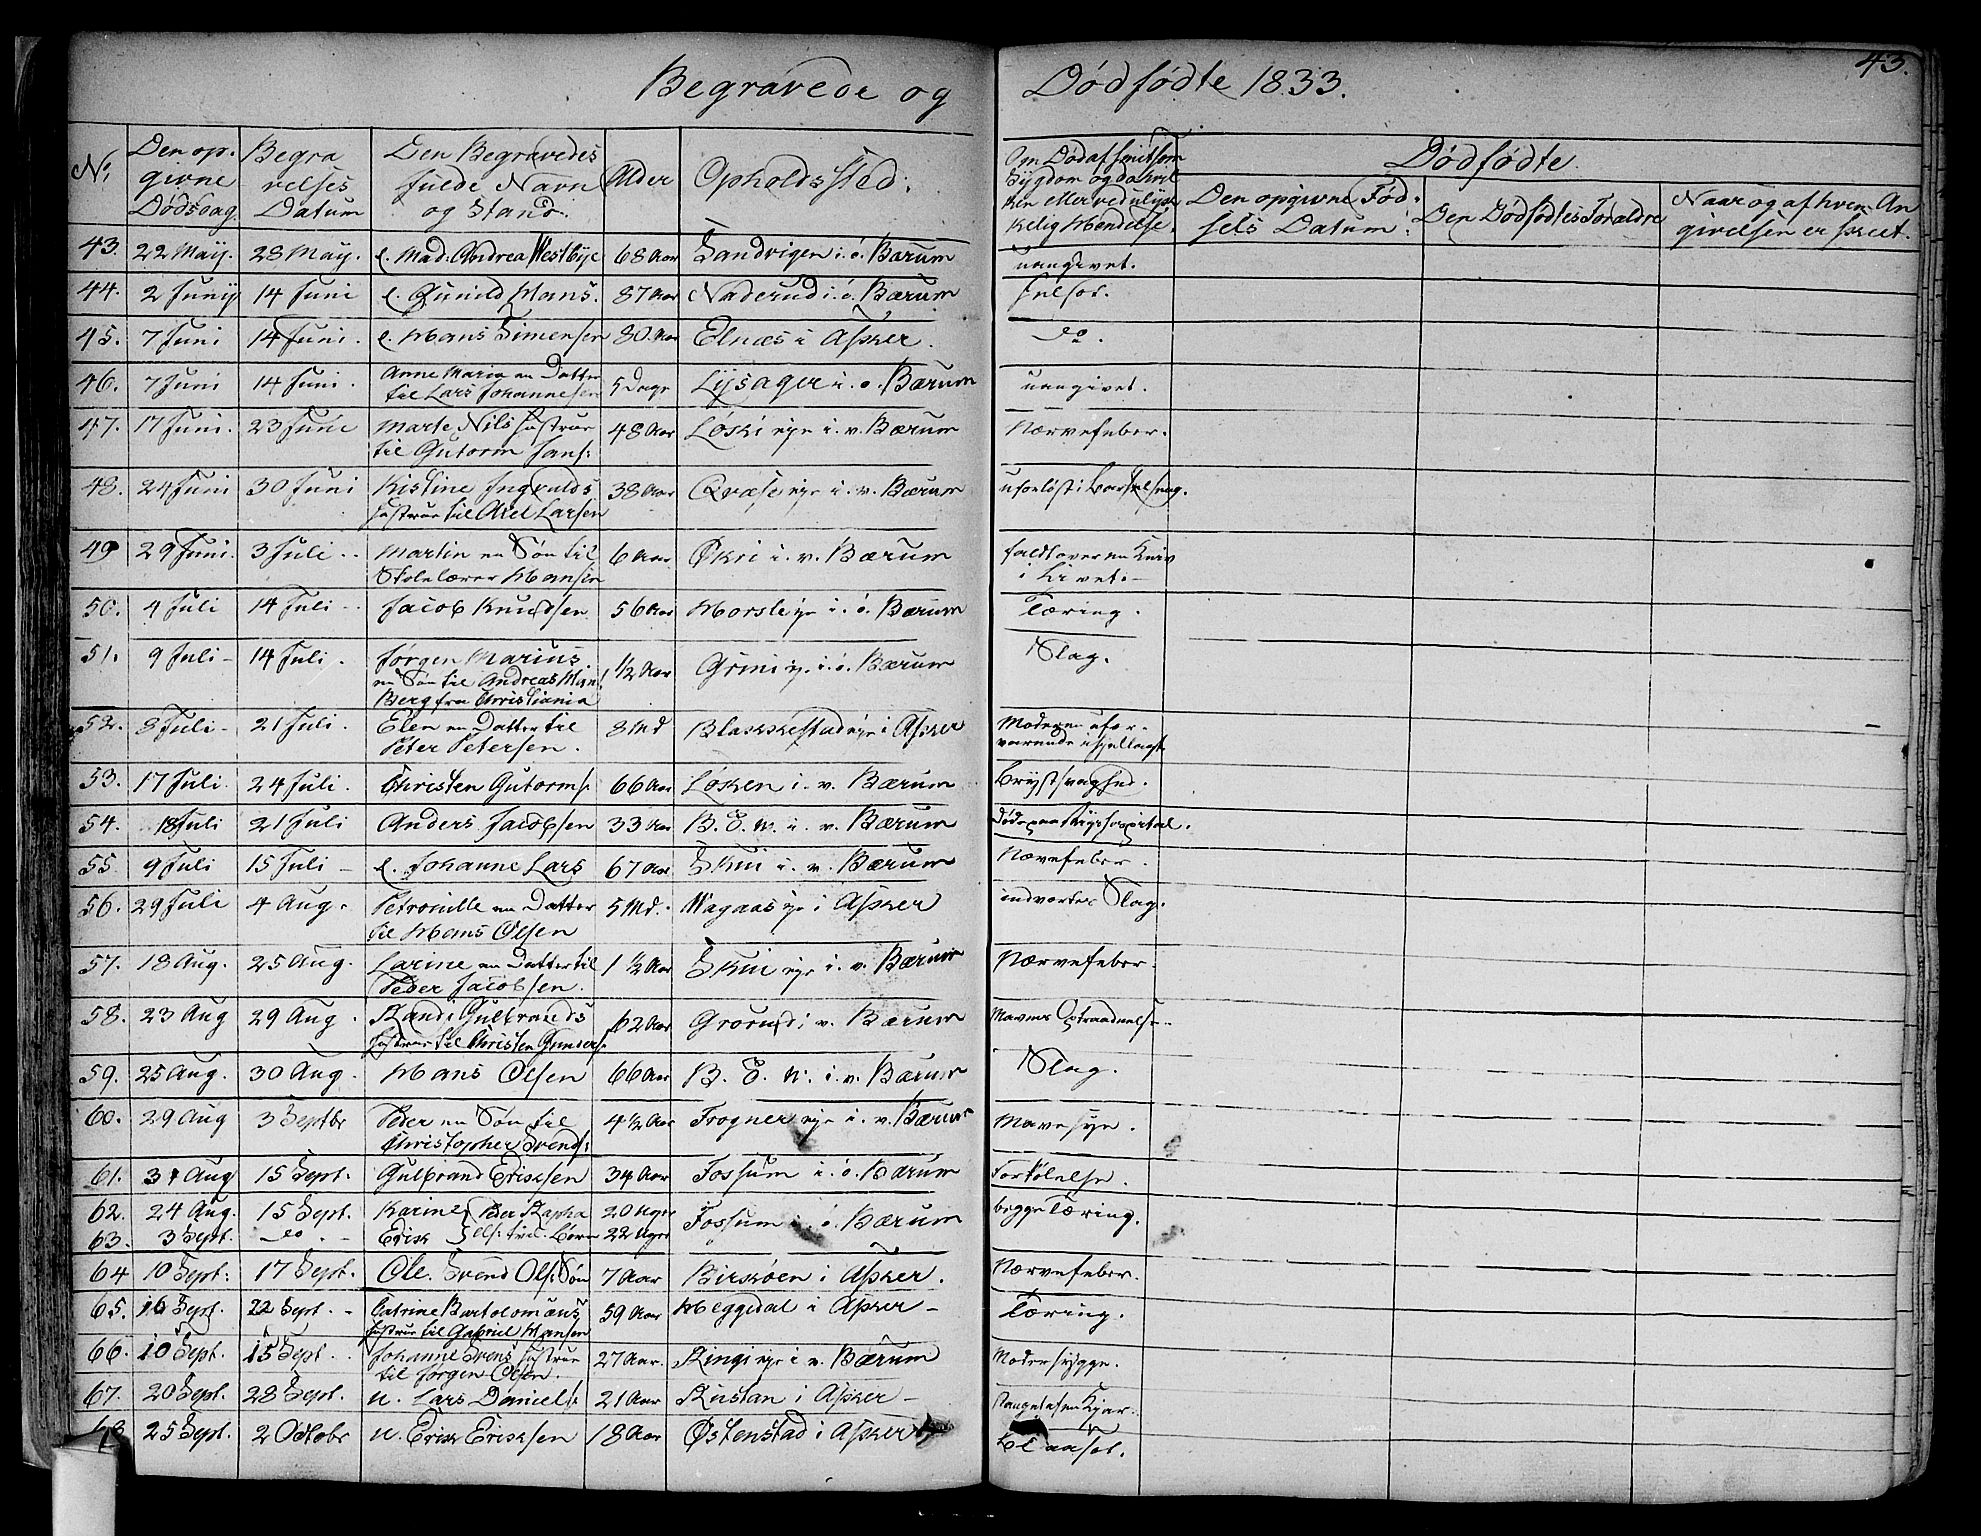 Begravede og Dødfødte 1833.
43.
No. Den opgivne Dødsdag. Begravelses Datum Den Begravedes fulde Navn og Stand. Alder Opholdssted. Dødfødte.
Den opgivne Fødsels Datum. Den Dødfødtes Forældre Naar og af hvem Angivelsen er skeet.
43. 22 May. 28 May. e. Mad. Andrea Westbye 68 Aar Sandvigen i. ö. Bærum uangivet.
44. 2 Juny 14 Juni e. Gunild Hans. 87 Aar Naderud i. ö. Bærum
45. 7 Juni 14 Juni. e. Hans Simensen 80. Aar Elnæs i Asker. do.
46. 7 Juni 14 Juni. Anne Maria en Datter
til Lars Johannesen 5 Dage Lysager i. ö. Bærum uangivet.
47. 17 Juni. 23 Juni Marte Nils Hustrue
til Gutorm Jans: 48 Aar Løski eje i. v. Bærum Nærvefeber.
48. 24 Juni 30 Juni Kistine Ingvalds
Hustrue til Axel Larsen 38 Aar Qvæse eje i. v. Bærum uforløst i Barselseng.
49 29 Juni. 3 Juli Martin en Søn til
Skolelærer Hansen 6 Aar Økri i. v. Bærum faldt over en Kniv
i Livet.
50. 4 Juli 14 Juli Jacob Knudsen 56 Aar Horsle eje i. ö. Bærum Tæring.
51. 9 Juli 14 Juli. Jørgen Marius
en Søn til Andreas
Berg fra Christiania 1/2 Aar Grini eje i. ö. Bærum Slag.
52. 8 Juli 21 Juli. Elen en Datter til
Peter Petersen. 8 Md Blakkestad eje i Asker Moderen ufor-
varende ihjellagt
53. 17 Juli. 24 Juli. Christen Gutorms: 66 Aar Løken i. v. Bærum Brystsvaghed.
54. 18 Juli 21 Juli Anders Jacobsen 33 Aar B. E. W. i. v. Bærum Døde paa Rigshospital.
55. 9 Juli 15 Juli e. Johanne Lars 67 Aar Skui i. v. Bærum Nærvefeber.
56. 29 Juli 4 Aug. Petronille en Datter
til Hans Olsen 5 Md. Wagaas eje i Asker indvortes Slag.
57. 18 Aug. 25 Aug. Larine en Datter til
Peder Jacobsen. 1 1/2 Aar Skui eje i. v. Bærum Nærvefeber.
58. 23 Aug 29 Aug. Randi Gulbrands
Hustrue til Christen Gunders: 62 Aar Grorud i v. Bærum
59. 25 Aug. 30 Aug. Hans Olsen 66 Aar B. E. W. i. v. Bærum Slag.
60. 29 Aug 3 Septbr Peder en Søn til
Christopher Svends: 4 1/2 Aar Frogner eje i. v. Bærum Mavesye.
61. 31 Aug 15 Sept. Gulbrand Ericksen 34 Aar Fossum i. ö. Bærum Forkølelse.
62. 24 Aug. 15 Sept. Karine Peder 20 Uger
63. 3 Sept. do Erik tvil. Børn 22 Uger Fossum i. ö. Bærum begge Tæring.
64 10 Sept: 17 Sept. Ole. Svend Ols: Søn 7 Aar Birkøen i Asker. Nærvefeber.
65. 16 Sept. 22 Sept. Catrine Bartolomæus
Hustrue til Gabriel Hansen 59 Aar Heggedal i Asker Tæring.
66. 10 Sept. 15 Sept. Johanne Svens Hustrue
til Jørgen Olsen. 27 Aar. Ringi eje i v. Bærum Modersygge.
67. 20 Sept. 28 Sept. u. Lars Daniels: 21 Aar Rustan i Asker
68 25 Sept. 2 Octobr u. Erik Ericksen 18 Aar Østenstad i Asker